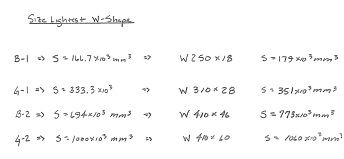 Size Lightest W-Shape
B-1 => S = 166.7x10³ mm³ => W 250 x 18 S = 179 x10³ mm³
G-1 => S = 333.3 x10³ => W 310 x 28 S = 351x10³ mm³
B-2 => S = 694x10³ mm³ => W 410 x 46 S = 773x10³ mm³
G-2 => S = 1000x10³ mm³ => W 410 x 60 S = 1060 x10³ mm³